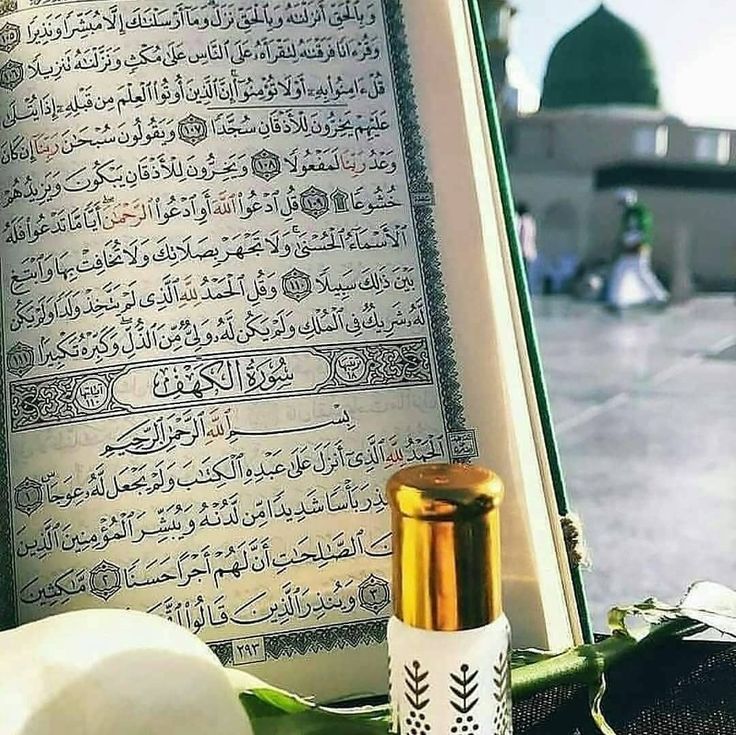 وَبِالْحَقِّ أَنزَلْنَٰهُ وَبِالْحَقِّ نَزَلَ وَمَا أَرْسَلْنَٰكَ إِلَّا مُبَشِّرًا وَنَذِيرًا ١٠٥
وَقُرْءَانًا فَرَقْنَٰهُ لِتَقْرَأَهُ عَلَى النَّاسِ عَلَىٰ مُكْثٍ وَنَزَّلْنَٰهُ تَنزِيلًا
١٠٦ قُلْ ءَامِنُوا بِهِ أَوْ لَا تُؤْمِنُوا إِنَّ الَّذِينَ أُوتُوا الْعِلْمَ مِن قَبْلِهِ إِذَا يُتْلَىٰ
عَلَيْهِمْ يَخِرُّونَ لِلْأَذْقَانِ سُجَّدًا ١٠٧ وَيَقُولُونَ سُبْحَٰنَ رَبِّنَا إِن كَانَ
وَعْدُ رَبِّنَا لَمَفْعُولًا ١٠٨ وَيَخِرُّونَ لِلْأَذْقَانِ يَبْكُونَ وَيَزِيدُهُمْ
خُشُوعًا ۩ ١٠٩ قُلِ ادْعُوا اللَّهَ أَوِ ادْعُوا الرَّحْمَٰنَ أَيًّا مَّا تَدْعُوا فَلَهُ
الْأَسْمَاءُ الْحُسْنَىٰ وَلَا تَجْهَرْ بِصَلَاتِكَ وَلَا تُخَافِتْ بِهَا وَابْتَغِ
بَيْنَ ذَٰلِكَ سَبِيلًا ١١٠ وَقُلِ الْحَمْدُ لِلَّهِ الَّذِي لَمْ يَتَّخِذْ وَلَدًا وَلَمْ يَكُن
لَّهُ شَرِيكٌ فِي الْمُلْكِ وَلَمْ يَكُن لَّهُ وَلِيٌّ مِّنَ الذُّلِّ وَكَبِّرْهُ تَكْبِيرًا ١١١
سُورَةُ الْكَهْفِ
بِسْمِ اللَّهِ الرَّحْمَٰنِ الرَّحِيمِ
الْحَمْدُ لِلَّهِ الَّذِي أَنزَلَ عَلَىٰ عَبْدِهِ الْكِتَٰبَ وَلَمْ يَجْعَل لَّهُ عِوَجَا ۜ ١
بَأْسًا شَدِيدًا مِّن لَّدُنْهُ وَيُبَشِّرَ الْمُؤْمِنِينَ الَّذِينَ
الصَّٰلِحَٰتِ أَنَّ لَهُمْ أَجْرًا حَسَنًا ٢ مَّٰكِثِينَ
٣ وَيُنذِرَ الَّذِينَ قَالُوا
٢٩٣